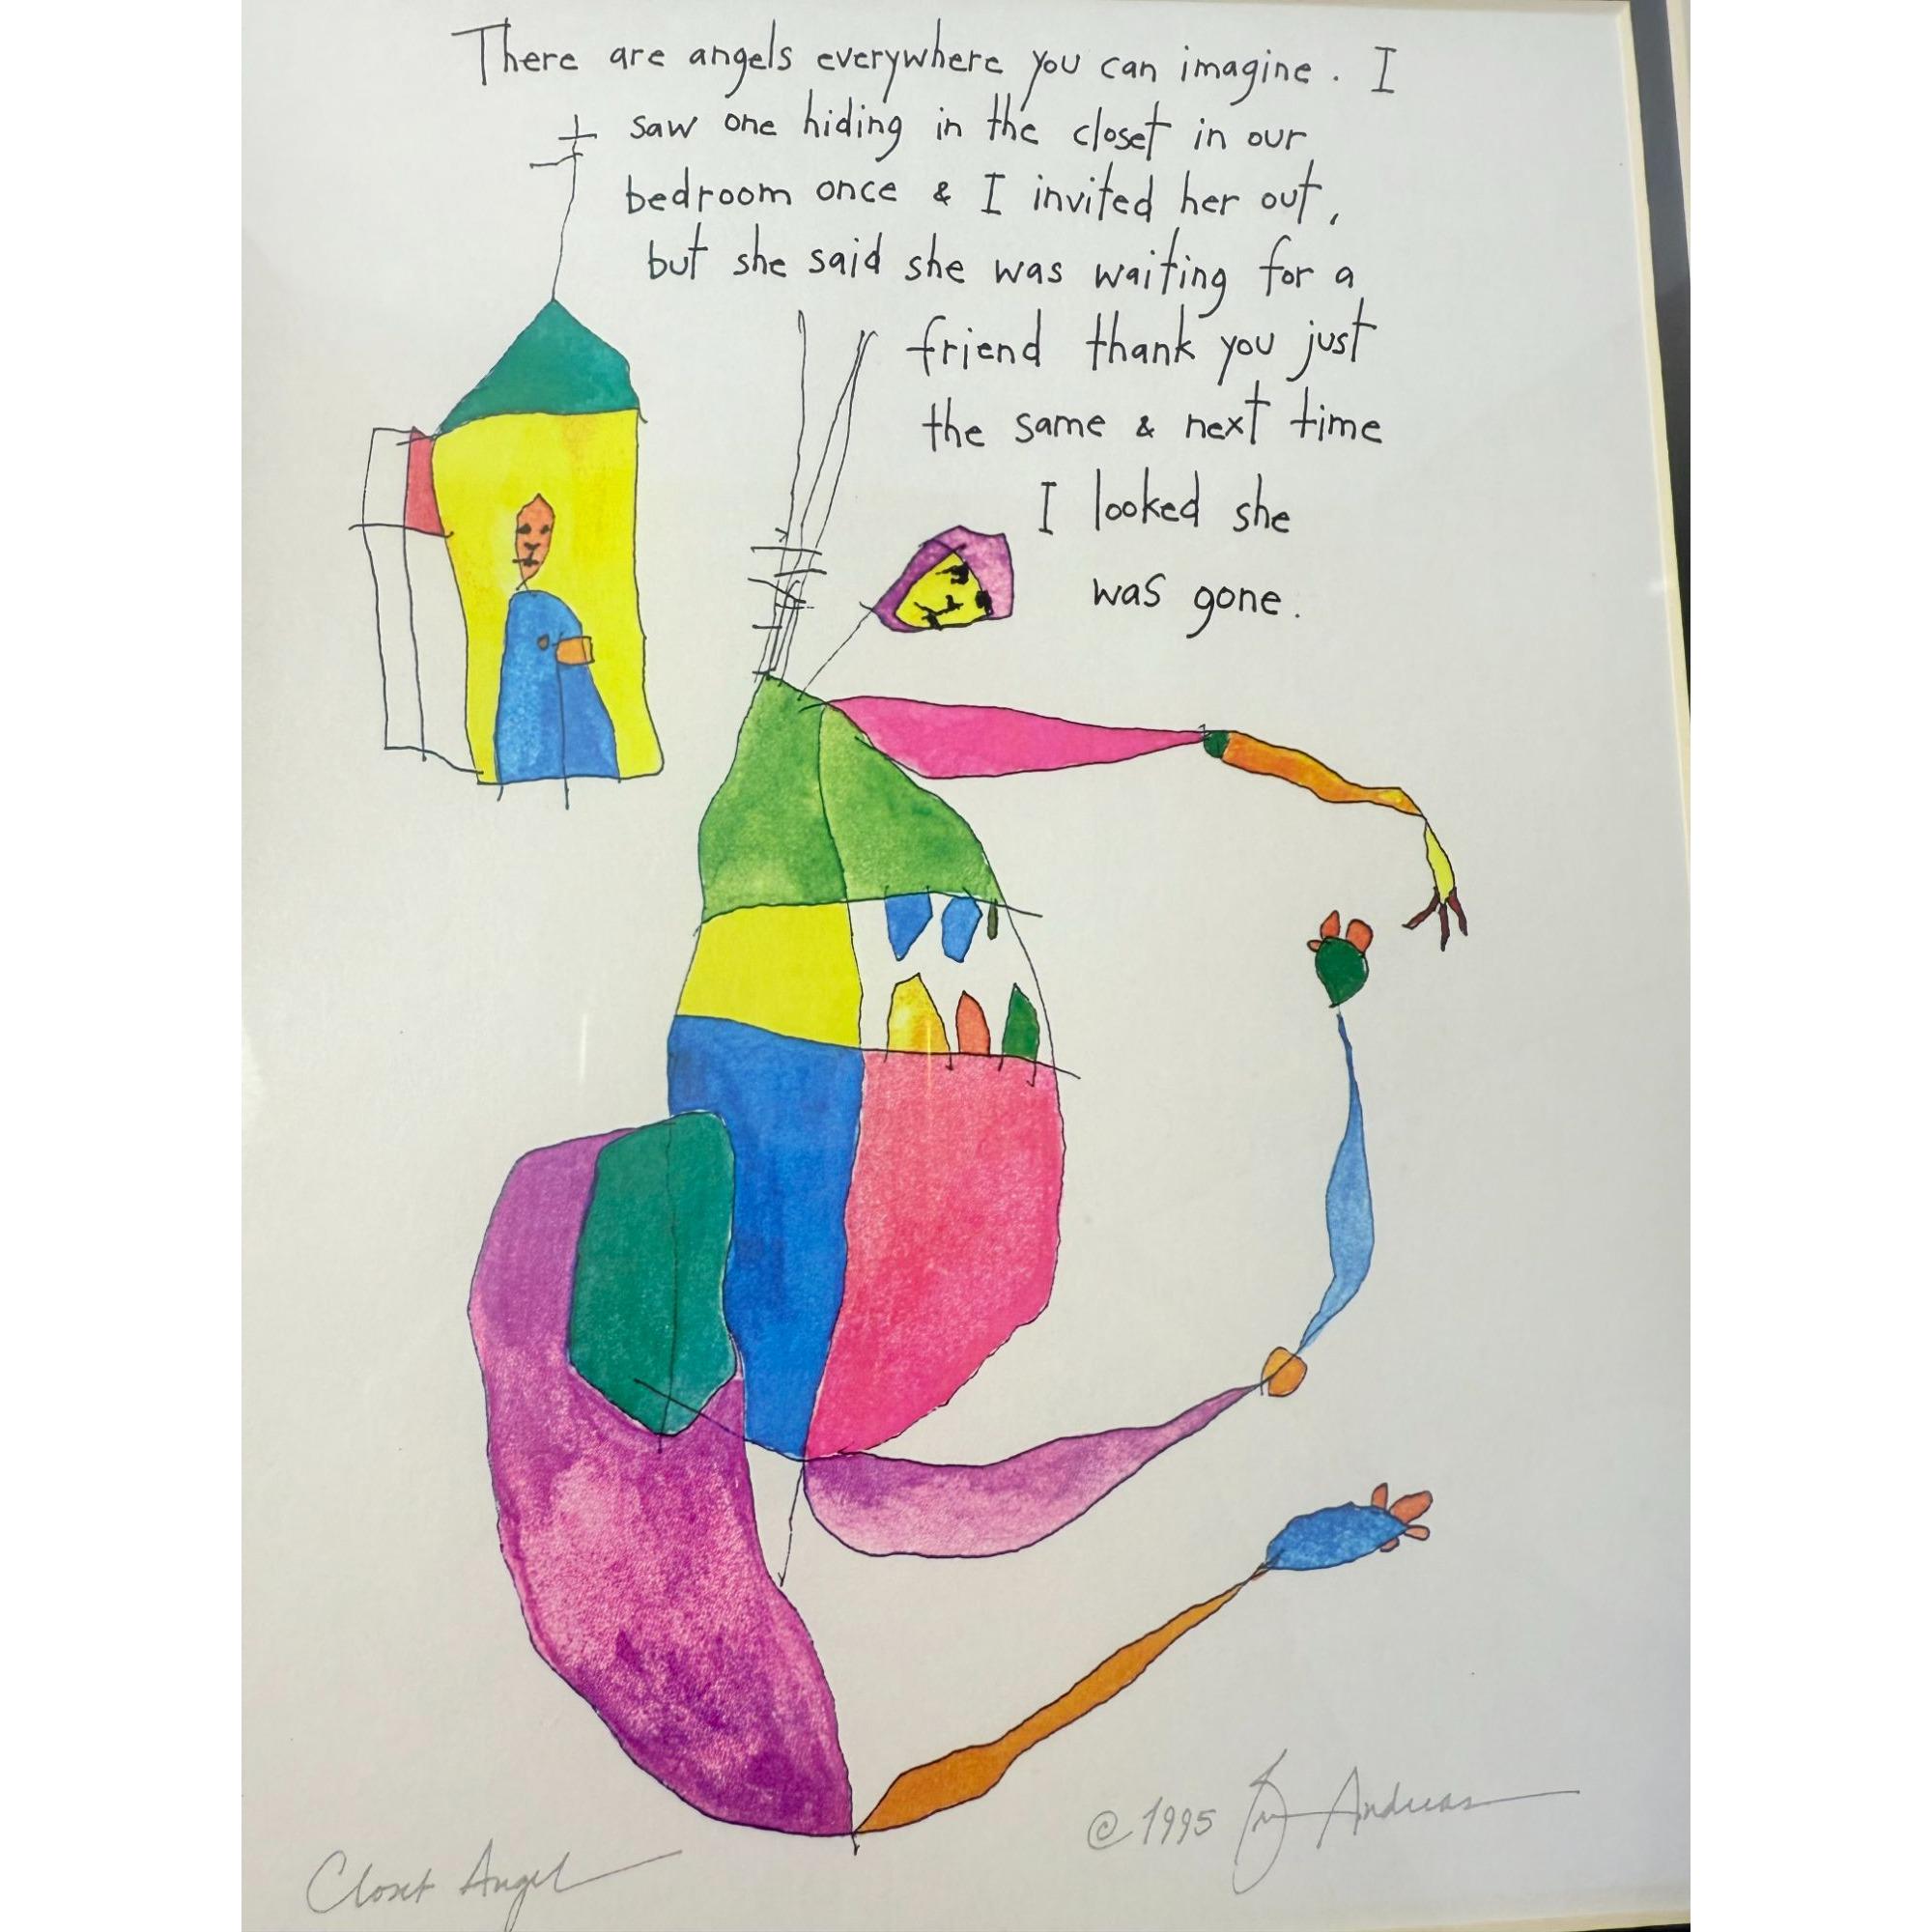 There are angels everywhere you can imagine. I
saw one hiding in the closet in our
bedroom once & I invited her out,
but she said she was waiting for a
friend thank you just
the same & next time
I looked she
was gone.
© 1995 Andreas
Closet Angel